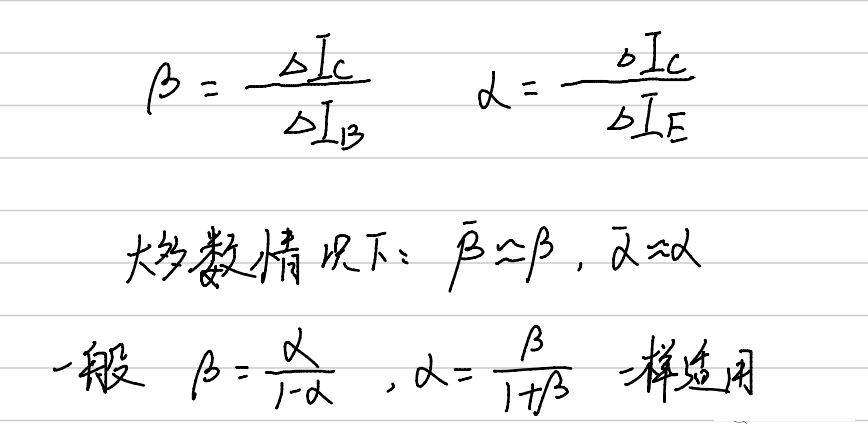 β = ΔIC/ΔIB α = ΔIC/ΔIE
大多数情况下: β̄≈β, ᾱ≈α
一般 β = α/1-α , α = β/1+β 一样适用